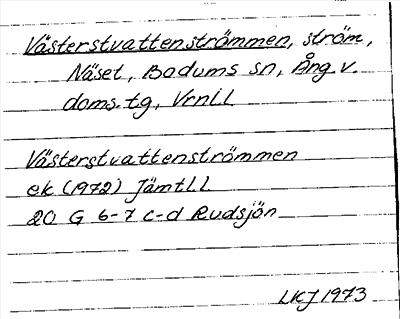 Västerstvattenströmmen, ström,
Näset, Bodums sn, Ång. v.
doms. tg, Vrnll
Västerstvattenströmmen
ek (1972) Jämtll
20 G 6-7 c-d Rudsjön
LKJ 1973